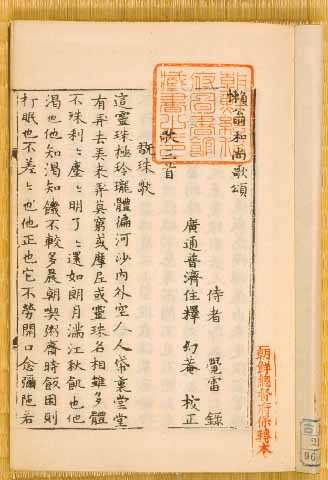 朝鮮總督府圖書館藏書之印
懶翁和尚歌頌
侍者 覺雷 錄
廣通普濟住釋 幻菴 校正
歌三首
翫珠歌
這靈珠極玲瓏體徧河沙內外空人人帒裏堂堂
有弄去弄來弄莫窮或摩尼或靈珠名相雖多體
不殊刹〻塵〻明了〻還如朗月滿江秋飢也他
渴也他知渴知飢不較多晨朝喫粥齋時飯困則
打眠也不差〻也他正也它不勞開口念彌陀若
朝鮮總督府保轉本
吉
2
96